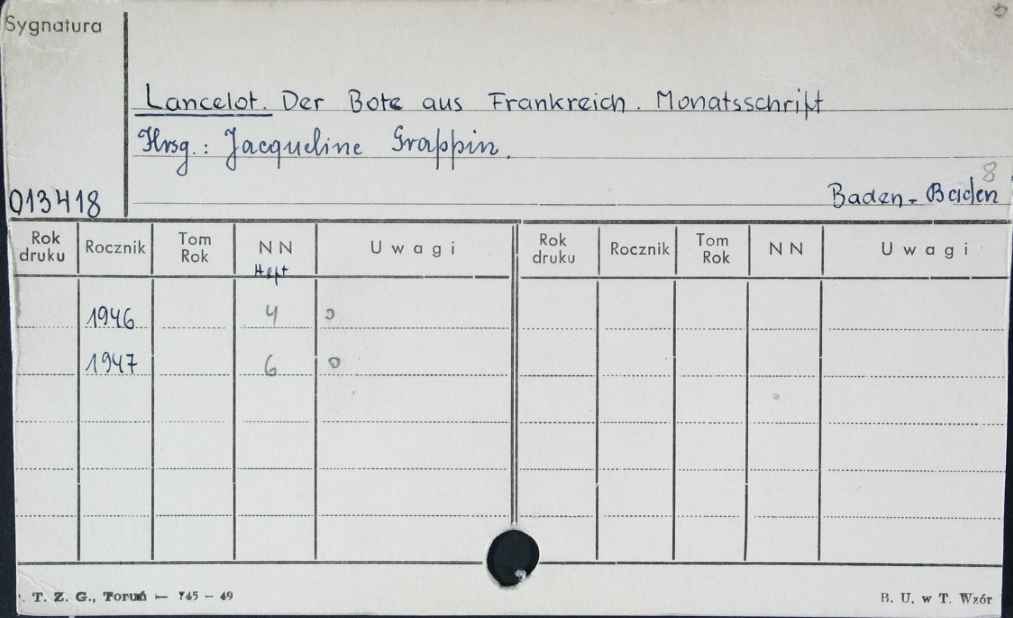 Sygnatura
Lancelot. Der Bote aus Frankreich. Monatsschrift
Hrsg.: Jacqueline Grappin.
8
013418 Baden-Baden
Rok druku Rocznik Tom Rok NN Uwagi Rok druku Rocznik Tom Rok NN Uwagi
Heft
1946 4 o
1947 6 o
T. Z. G., Toruń — 745 – 49 B. U. w T. Wzór